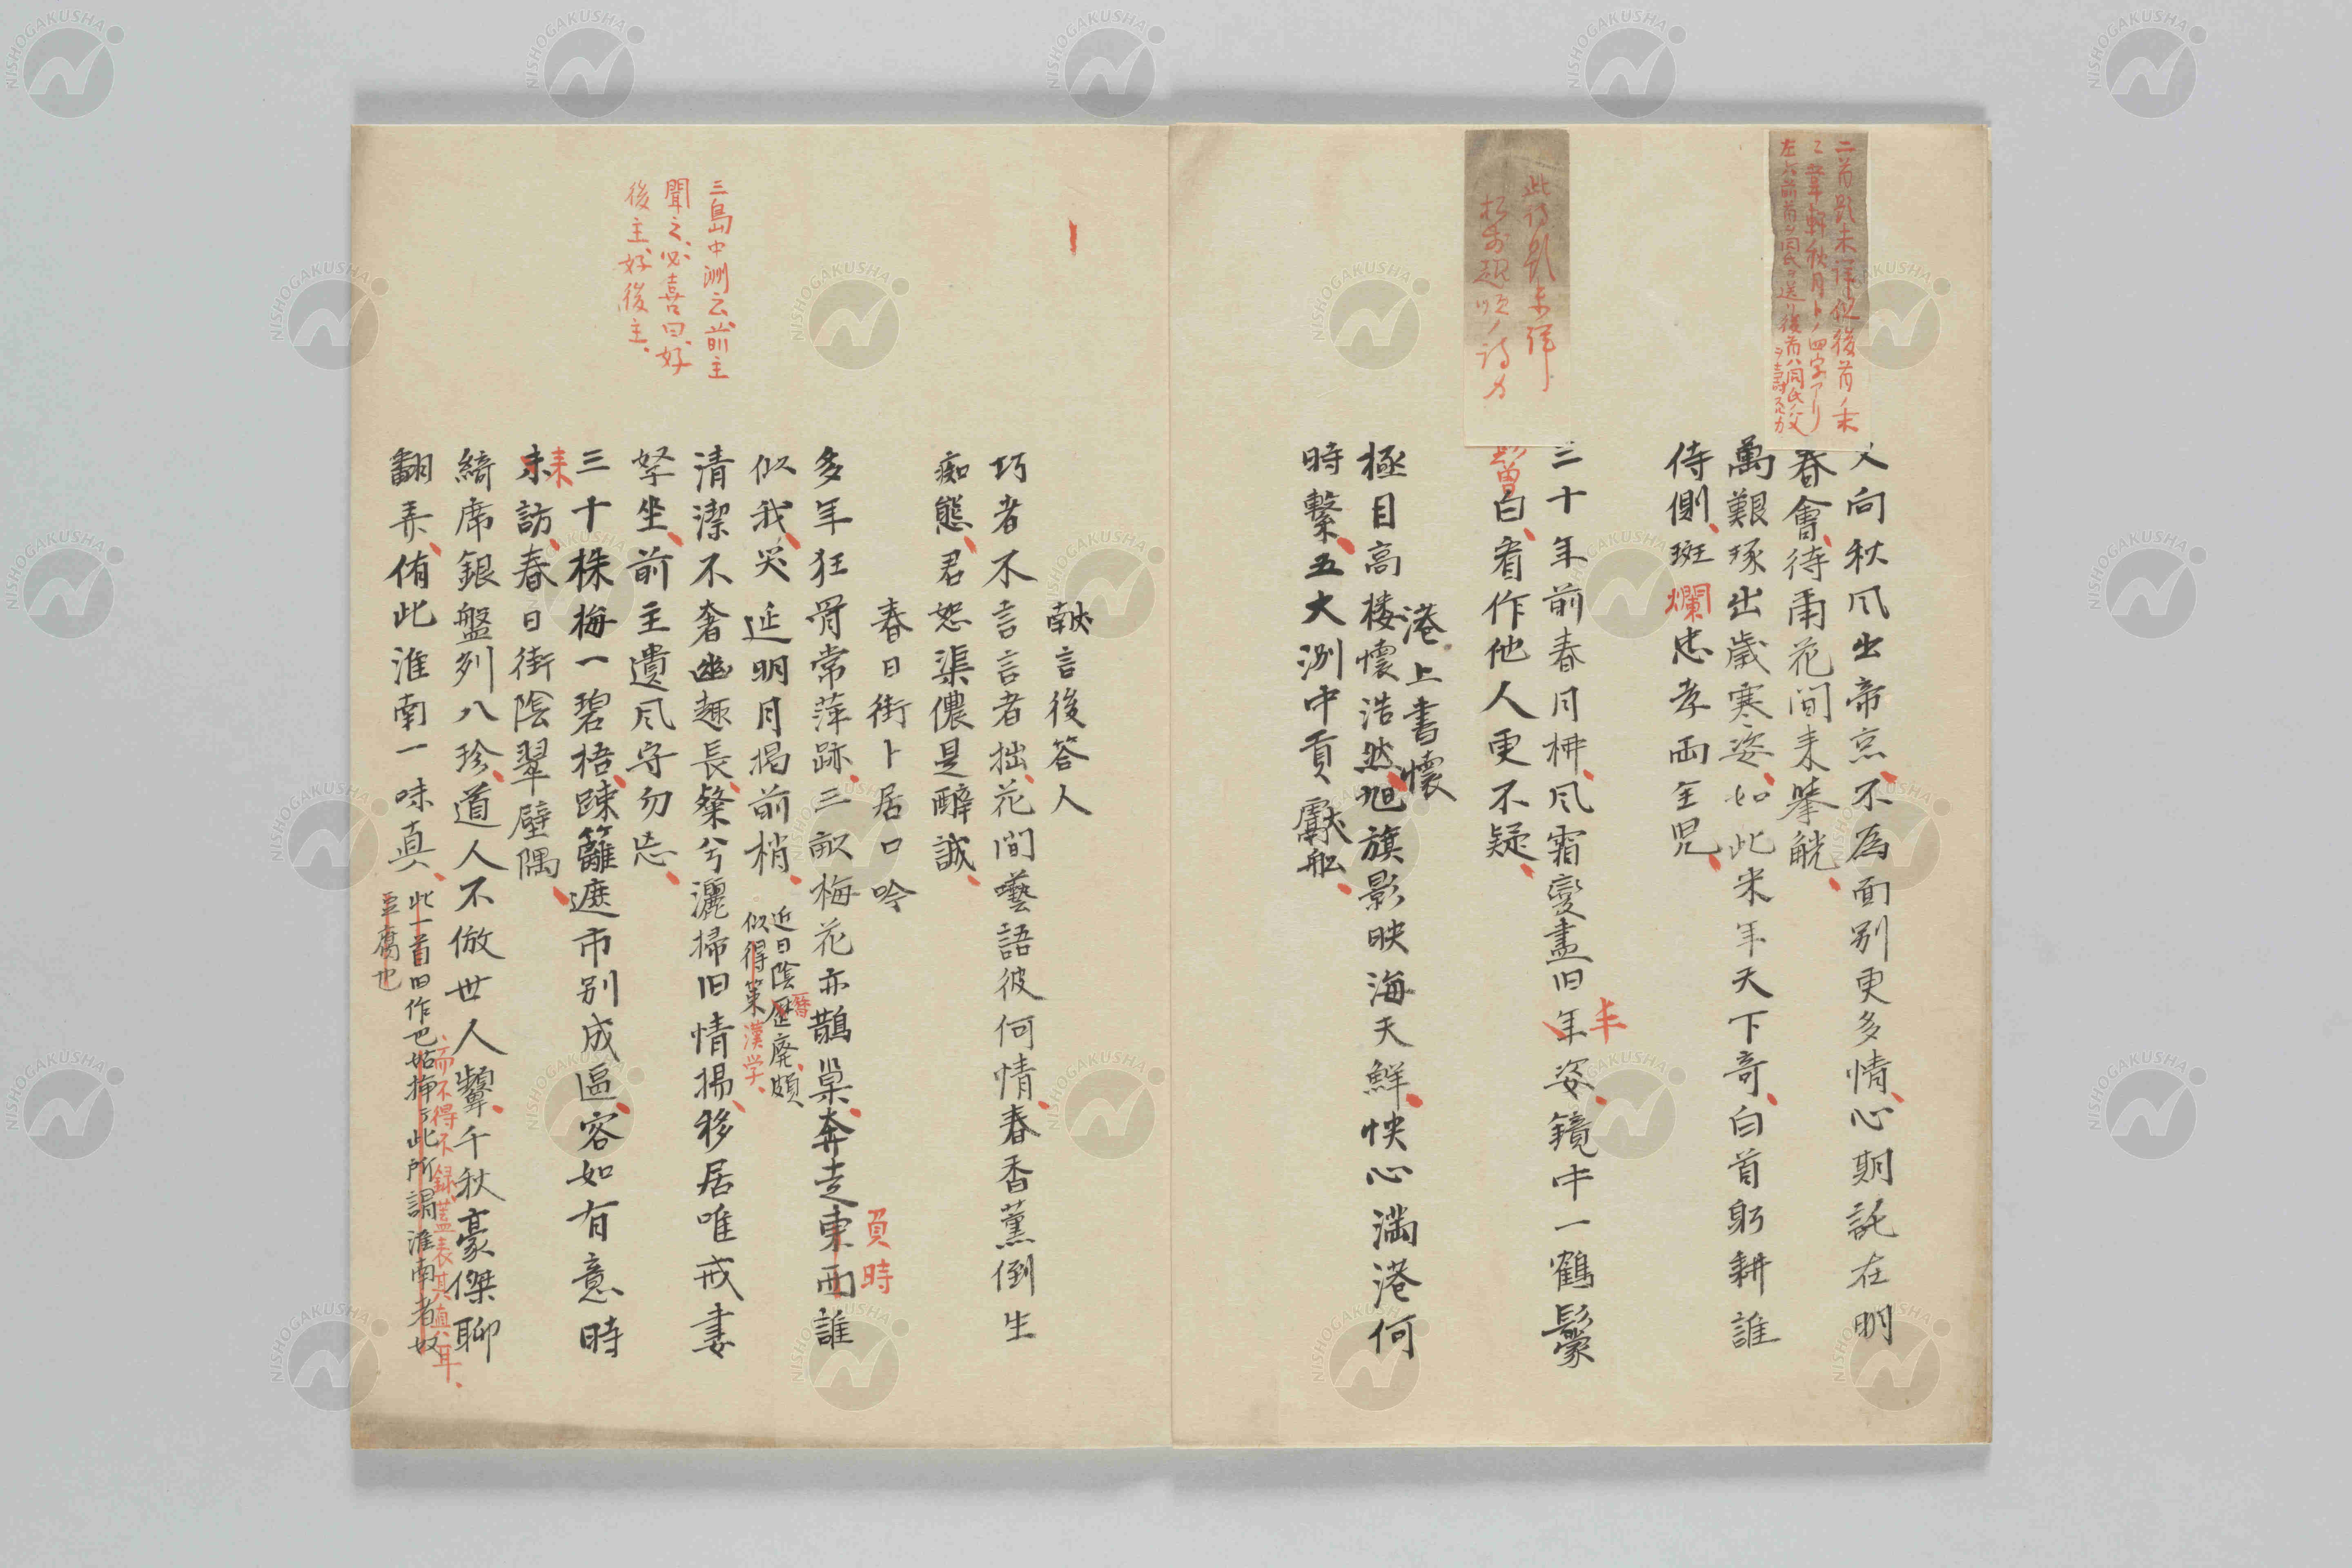 二首題未詳但後首ノ末
ニ葦軒秋月卜ノ四字アリ
左レバ前首ヲ同氏ニ送リ後首ハ同氏ノ父
ヲ壽スルカ
又向秋风出帝京不為面別更多情心期託在明
春會待雨花間来擧觥
萬艱琢出歳寒姿如此米年天下奇白首躬耕誰
侍側斑爛忠孝両全児
此詩題未詳
松本親順ノ詩カ
三十年前春月栟风霜變盡旧年姿鏡中一鶴鬢
丰
曽白看作他人更不疑
港上書懐
極目高楼懐浩然旭旗影映海天鮮快心満港何
時繫五大洲中貢獻舩
献言後答人
巧者不言言者拙花間囈語彼何情春香薫倒生
痴態君恕渠儂是醉誠
春日街卜居口吟
多年狂骨常萍跡三畝梅花亦鵲巣奔走東西誰
負時
似我笑延明月揭前梢
近日陰歴廃頗
暦
似得策
漢学
三島中洲云前主
聞之必喜曰好
後主好後主
清潔不奢幽趣長粲兮灑掃旧情揚移居唯戒妻
孥坐前主遺风守勿忘
三十株梅一碧梧踈籬遮市别成區客如有意時
未訪春日街陰翠壁隅
来
綺席銀盤列八珍道人不倣世人顰千秋豪傑聊
翻弄侑此淮南一味真
此一首旧作也姑挿于此所謂淮南者奴
豆腐也
而不得不録蓋表其真耳
NISHOGAKUSHA